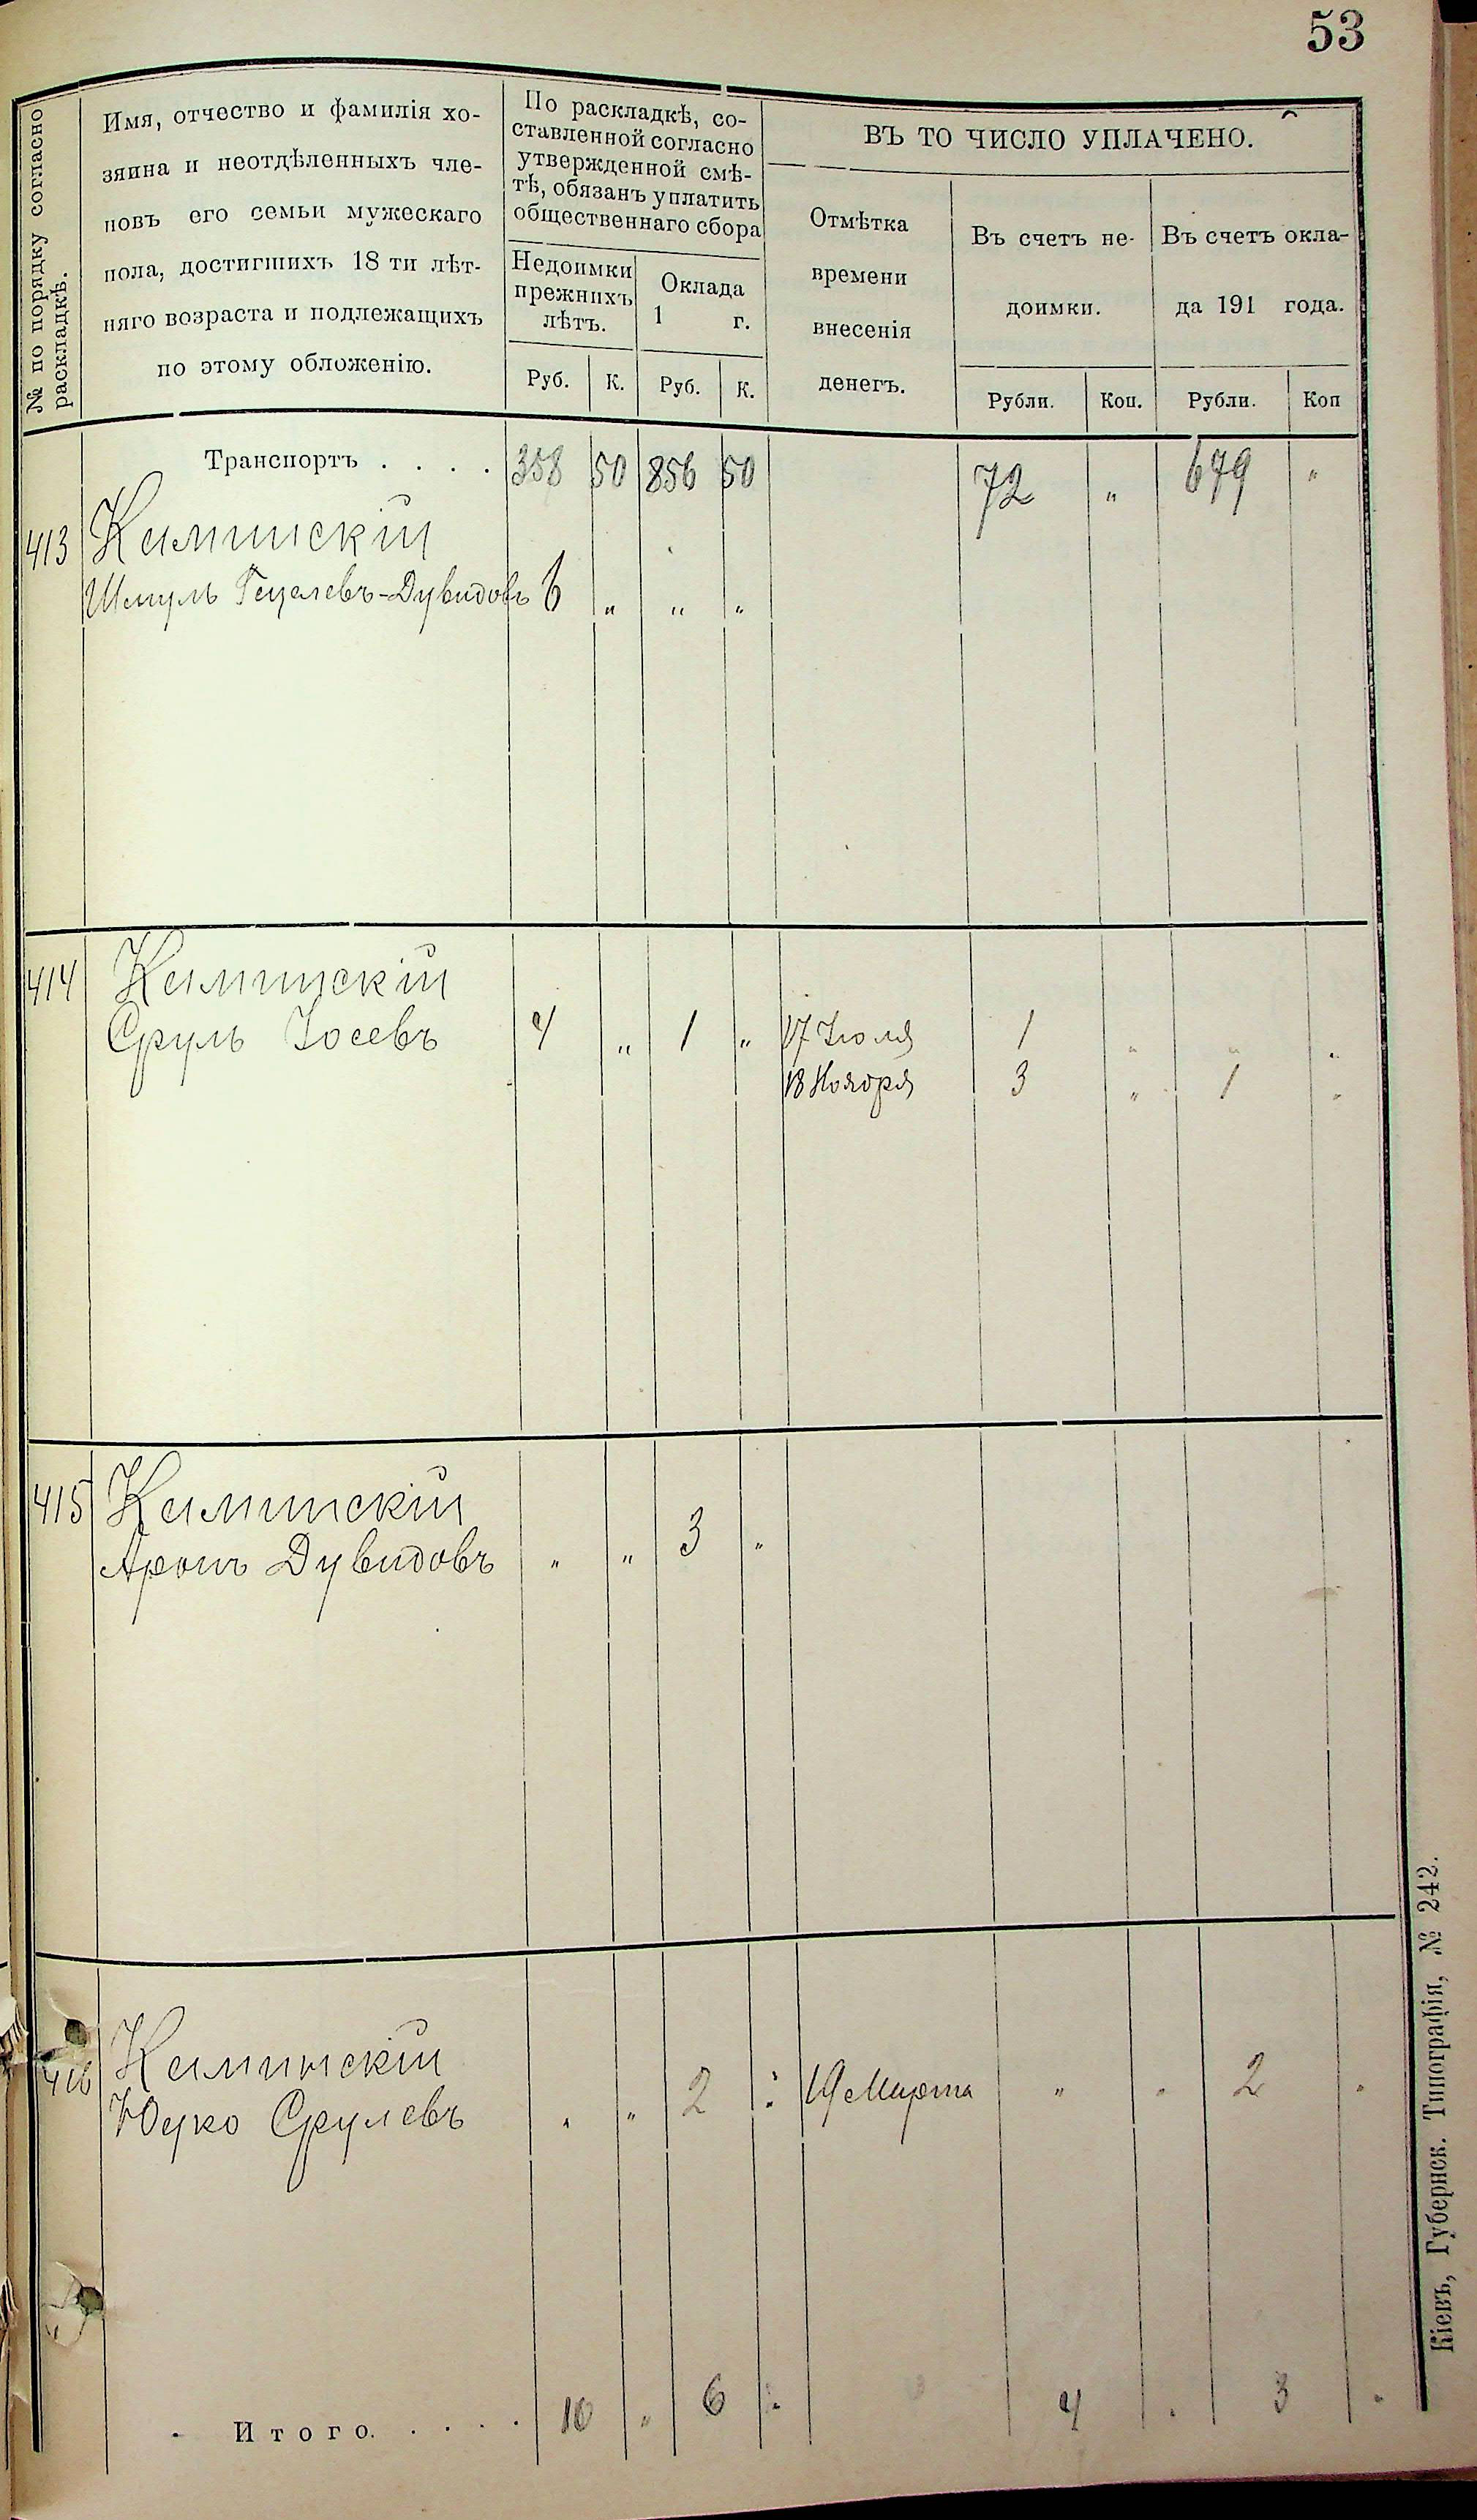 53
№ по порядку согласно
раскладкѣ.
Имя, отчество и фамилія хо-
зяина и неотдѣленныхъ чле-
новъ его семьи мужескаго
пола, достигшихъ 18 ти лѣт-
няго возраста и подлежащихъ
по этому обложенію.
По раскладкѣ, со-
ставленной согласно
утвержденной смѣ-
тѣ, обязанъ уплатить
общественнаго сбора
Недоимки
прежнихъ
лѣтъ.
Оклада
1 г.
Руб. К. Руб. К.
ВЪ ТО ЧИСЛО УПЛАЧЕНО.
Отмѣтка
времени
внесенія
денегъ.
Въ счетъ не-
доимки.
Въ счетъ окла-
да 191 года.
Рубли. Коп. Рубли. Коп
Транспортъ . . . . 358 50 856 50 72 " 679 "
413 Каминскій
Шмуль Гецелевъ-Дувидовъ 6 " " "
414 Каминскій
Сруль Іосевъ 4 " 1 " 17 Іюля 1 " " "
18 Ноября 3 " 1 "
415 Каминскій
Аронъ Дувидовъ " " 3 "
416 Каминскій
Юцко Срулевъ " " 2 : 19 Марта " " 2 "
Итого. . . . . 10 " 6 " 4 . 3 .
Кіевъ, Губернск. Типографія, № 242.